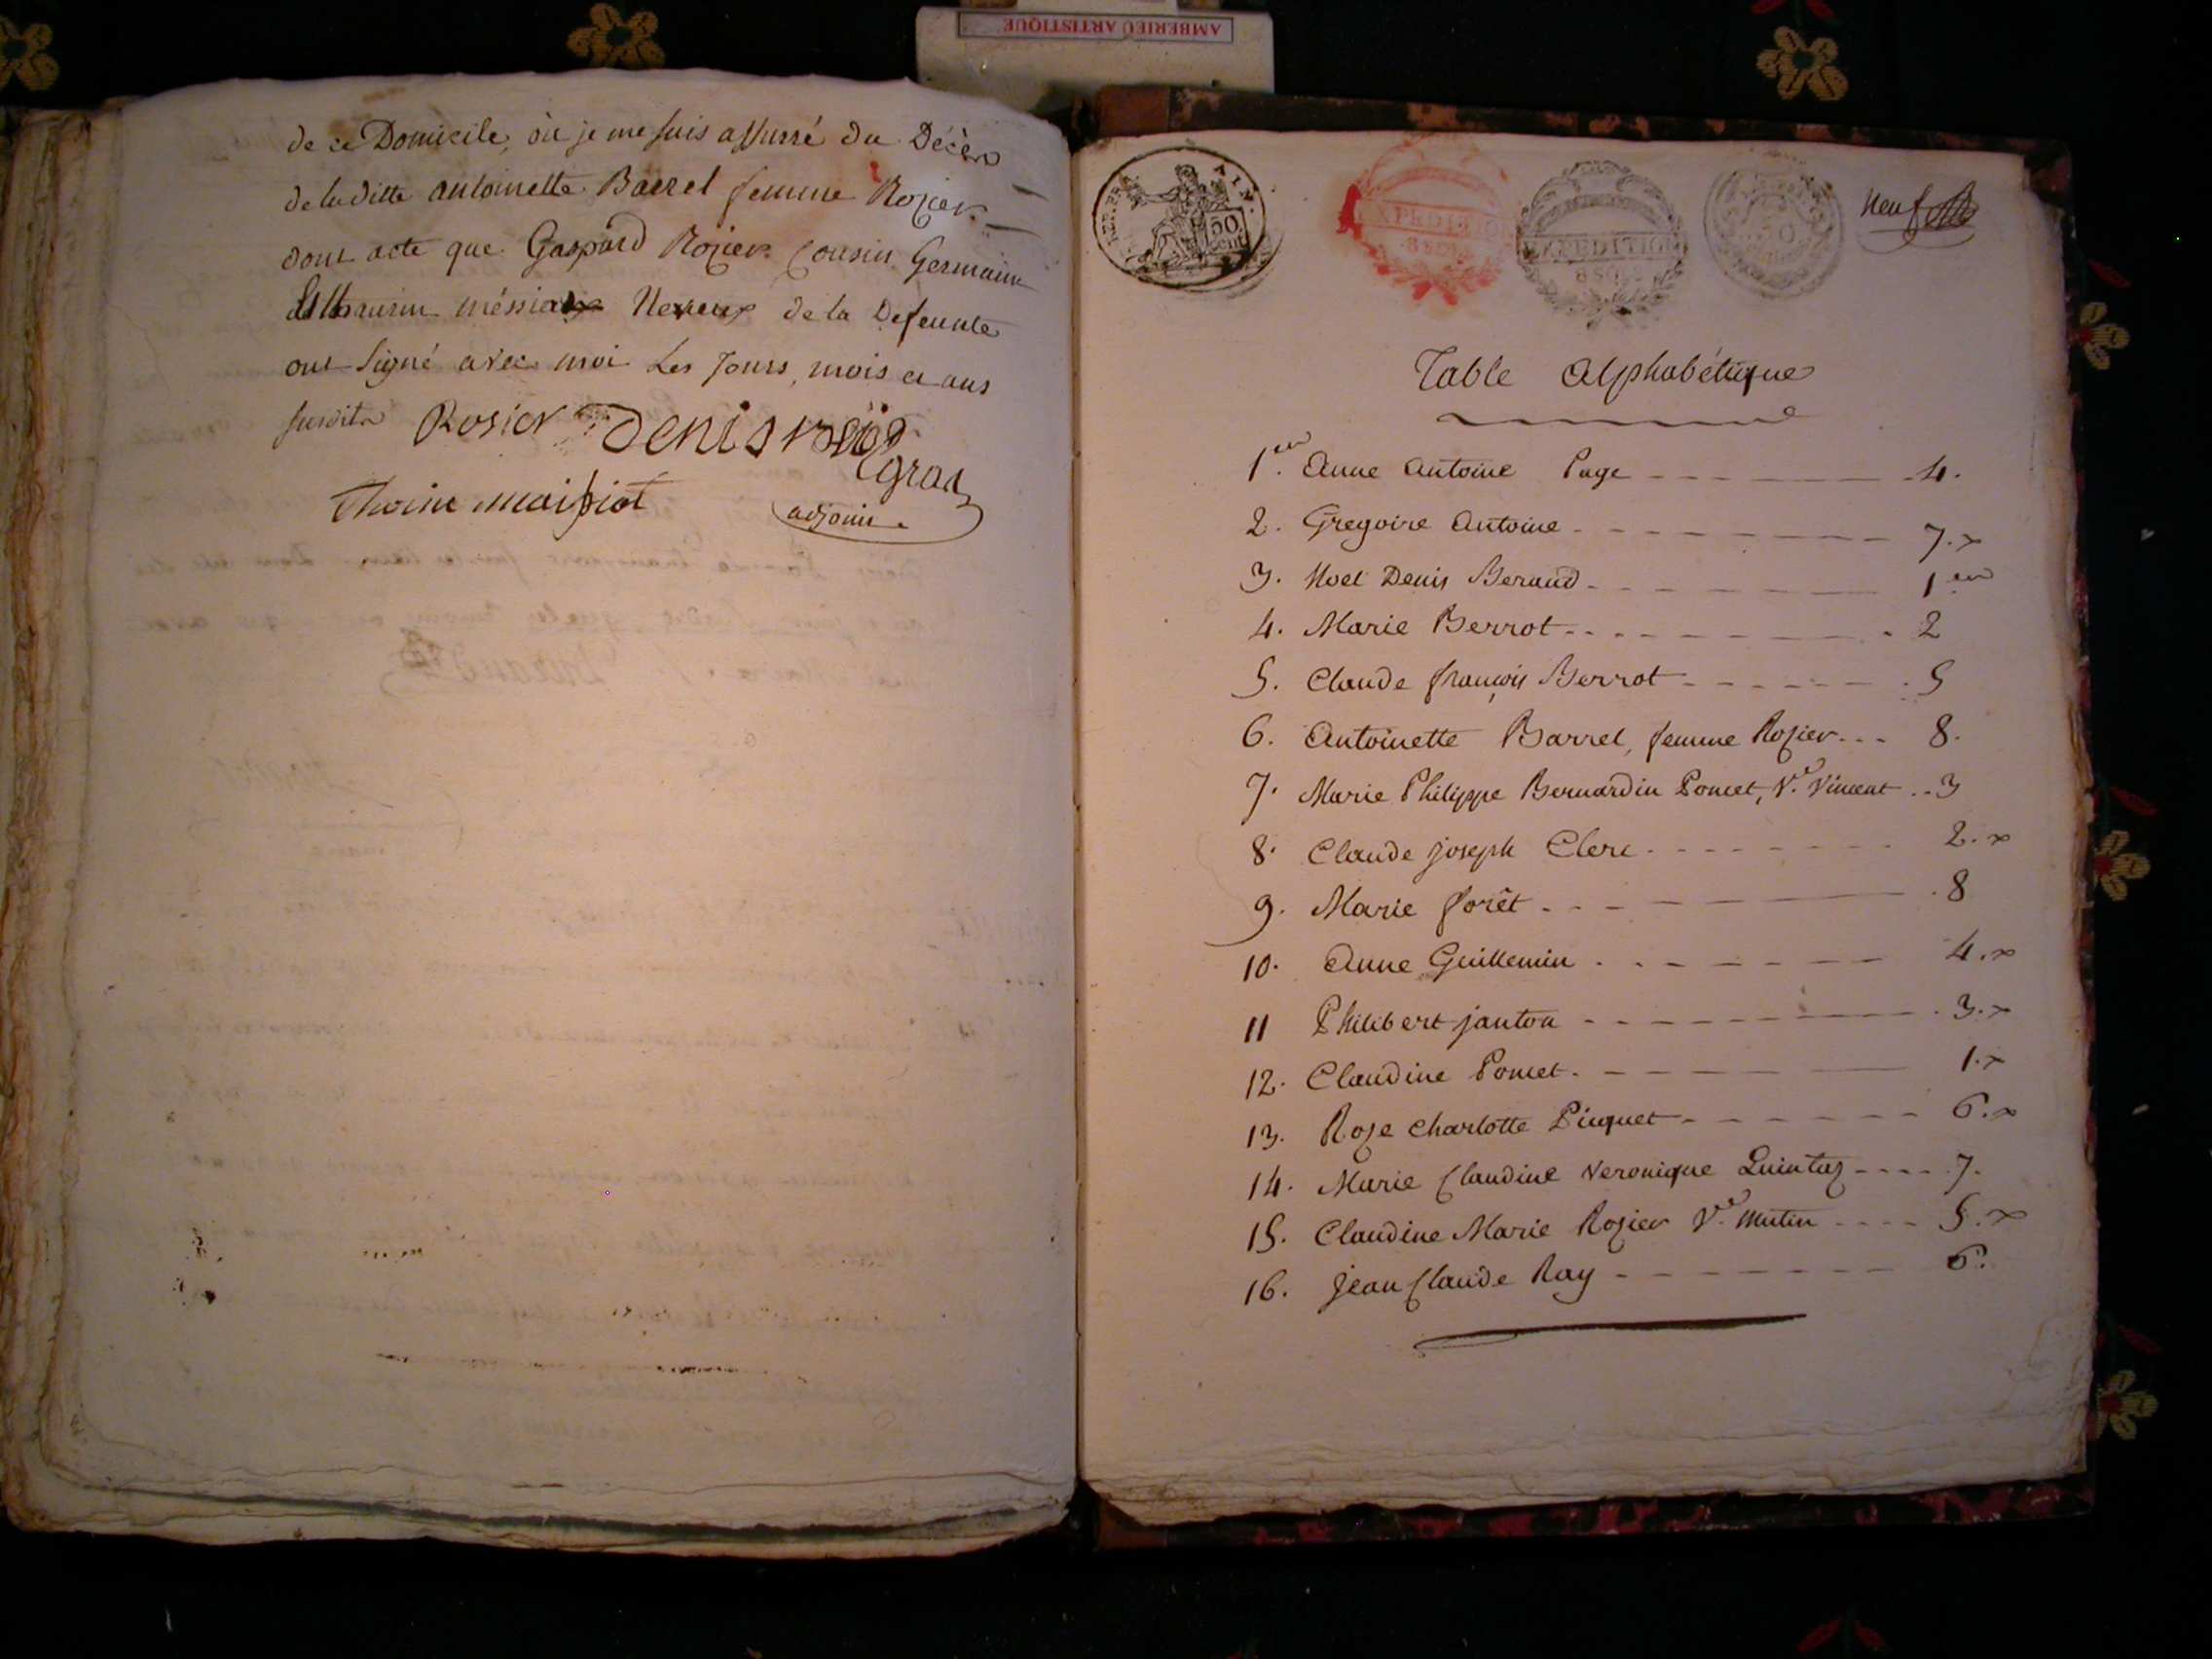 AMBERIEU ARTISTIQUE
de ce Domicile, où je me suis assurré du Décès
de laditte antoinette Barrel femme Rozier
dont acte que Gaspard Rozier Cousin Germain
Neveux de la Defeunte
ont signé avec moi Les Jours, mois et ans
susdits Rosier Denis
Gras
adjoint
REP. FRA. AIN.
50 cent
EXPEDITION
EXPEDITION
neuf
Table Alphabétique
1er. Anne Antoine Page 4.
2. Gregoire Antoine 7.x
3. Noel Denis Beraud 1er
4. Marie Berrot 2
5. Claude françois Berrot 5
6. Antoinette Barrel, femme Rozier 8.
7. Marie Philippe Bernardin Poncet, Ve. Vincent 3
8. Claude joseph Clerc 2.x
9. Marie forêt 8
10. Anne Guillemin 4.x
11 Philibert janton 3.x
12. Claudine Poncet 1.x
13. Roze Charlotte Pinquet 6.x
14. Marie Claudine Veronique Quintaz 7.
15. Claudine Marie Rozier Ve. Mutin 5.x
16. Jean Claude Ray 6.